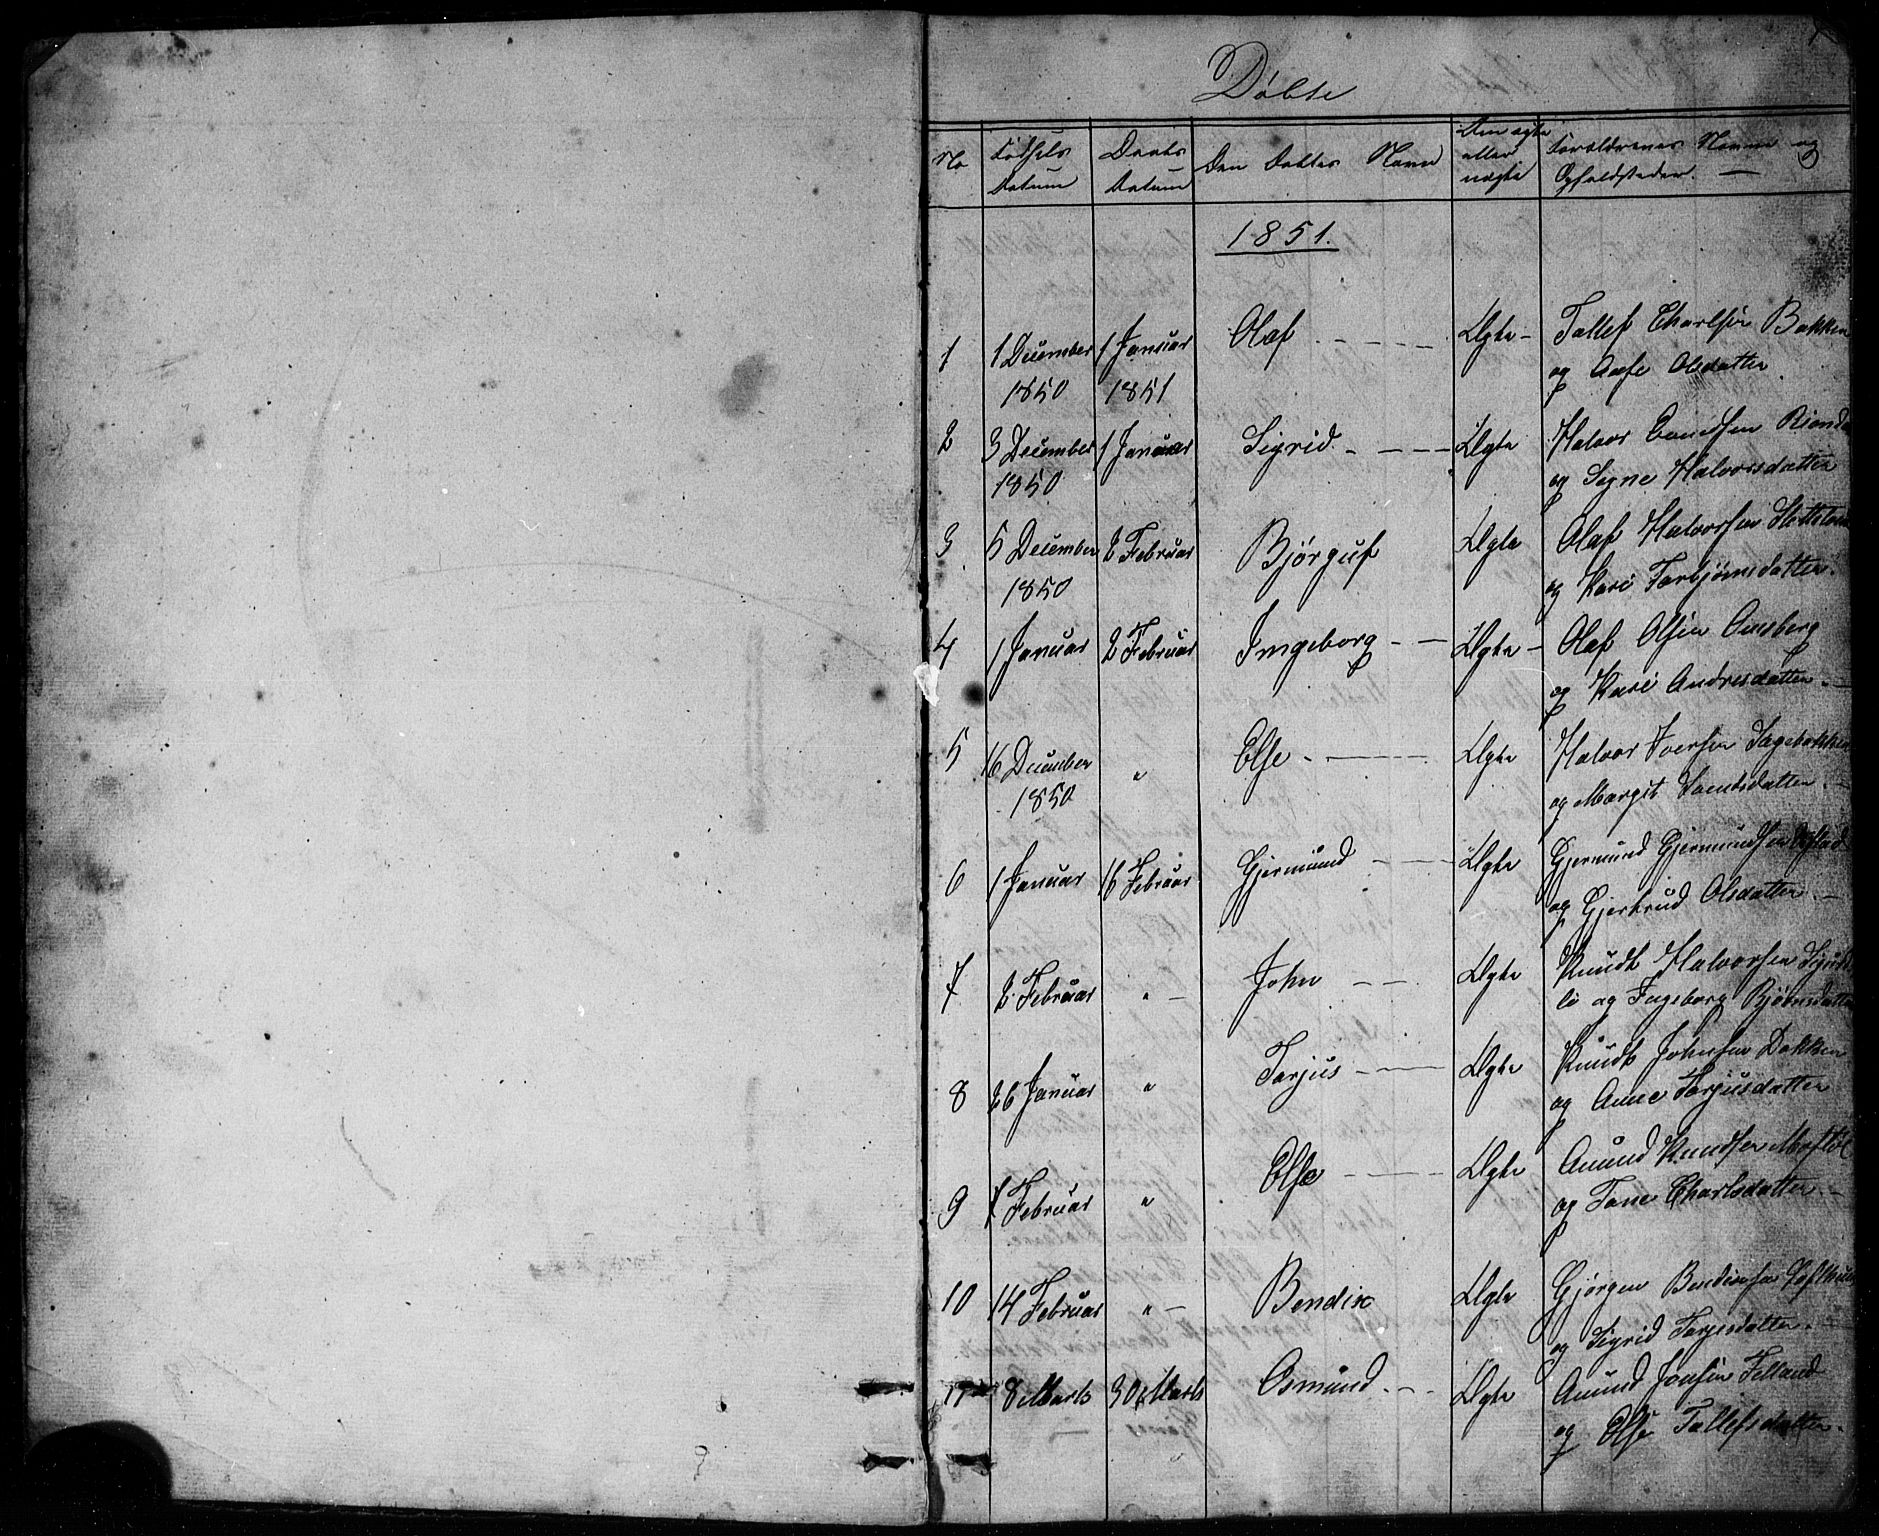 Døbte
No
Fødsels Datum
Daabs Datum
Den Døbtes Navn
Om ægte eller uægte
Forældrenes Navne og Opholdssteder. —
1851.
1 1 December 1 Januar Olaf Ægte Tallef Charlsen Bakken
1850 1851 og Aase Olsdatter
2 3 December 1 Januar Sigrid Ægte Halvor
1850 og Signe Halvorsdatter
3 5 December 2 Februar Bjørguf Ægte Olaf Halvorsen
1850 og Kari Torbjørnsdatter.
4 1 Januar 2 Februar Ingeborg Ægte Olaf Olsen
og Kari Andresdatter. —
5 16 December " Else Ægte Halvor Iversen
1850 og Margit
6 1 Januar 16 Februar Gjermund Ægte Gjermund Gjermundsen
og Gjertrud Olsdatter. —
7 2 Februar " John Ægte Knudt Halvorsen
li og Ingeborg Bjørnsdatter
8 26 Januar " Torjus Ægte Knudt Johnsen Dokken
og Anne Torjusdatter
9 7 Februar " Else Ægte Amund Knudsen
og Tone Charlsdatter. —
10 14 Februar " Bendix Ægte Gjørgen Bendixsen
og Sigrid Torjesdatter. —
11 8 Marts 30 Marts Osmund Ægte Amund Jonsen Felland
og Else Tallefsdatter.